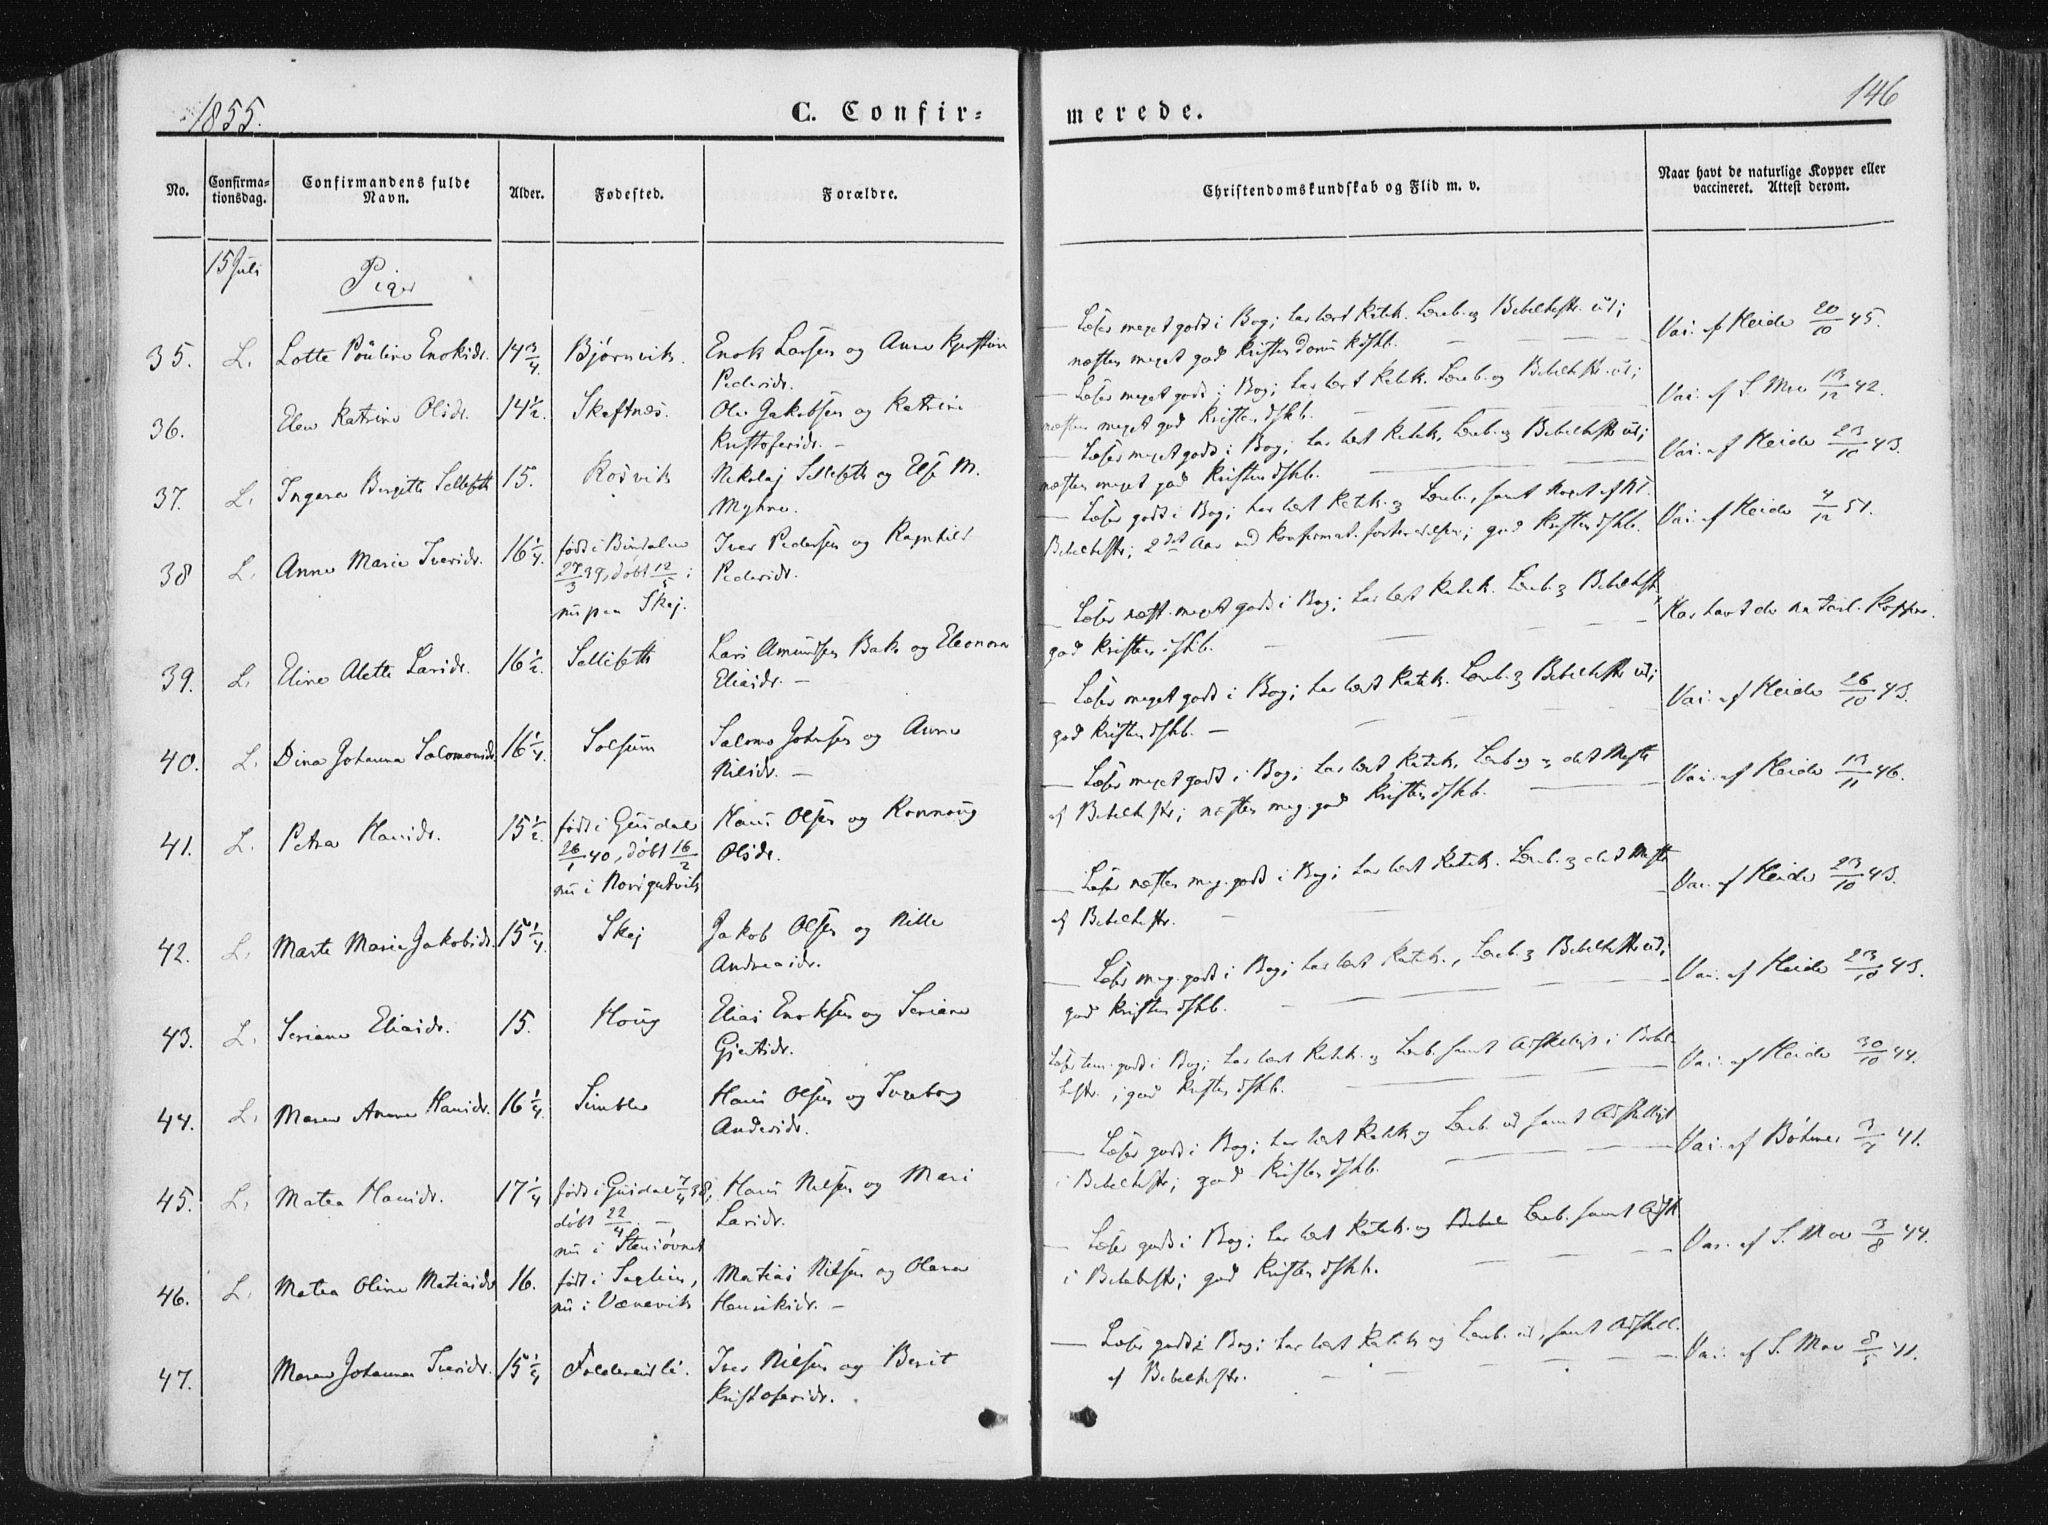 1855.
C. Confirmerede.
146
No.
Confirmationsdag.
Confirmandens fulde Navn.
Alder.
Fødested.
Forældre.
Christendomskundskab og Flid m. v.
Naar havt de naturlige Kopper eller vaccineret. Attest derom.
15 Juli
Piger
35. L. Lotte Pouline Enoksdr. 14 3/4. Bjørnvik. Enok Larsen og Anne Kjerstine Pedersdr.
— Læser meget godt i Bog; har lært Katek. Læreb. og Bibelhistr. ud; næsten meget god Kristendoms Kdskb.
Vac. af Heide 20/10 45.
36. Elen Katrine Olsdr. 14 1/2. Skeftnes. Ole Jakobsen og Katrine Kristofersdr. —
— Læser meget godt i Bog; har lært Katek. Læreb. og Bibelhistr. ud; næsten meget god Kristendskb.
Vac. af S. Moe 13/12 42.
37. L. Ingera Bergitte Sellseth 15. Rosvik Nikolaj Sellseth og Else M. Myhre.
— Læser meget godt i Bog; har lært Katek. Læreb. og Bibelhistr ud; næsten meget god Kristendskb.
Vac. af Heide 23/10 43.
38 L. Anne Marie Iversdr. 16 1/4. født i Bindalen 27/3 39, døbt 12/5; nu paa Skej. Iver Pedersen og Ragnhild Pedersdr.
— Læser godt i Bog; har lært Katek. og Læreb., samt noget af Bibelhistr; 2det Aar ved Konfirmat. forberedelsen; god Kristendskb.
Vac. af Heide 4/12 51.
39. L. Eline Alette Larsdr. 16 1/2. Sellseth Lars Amundsen Bak og Eleonora Eliasdr. —
— Læser næst. meget godt i Bog; har lært Katek. Læreb. og Bibelhistr, god Kristendskb.
Har havt de naturl. Kopper.
40. L. Dina Johanna Salomonsdr 16 1/4. Solsem Salomo Johnsen og Anne Nilsdr. —
— Læser meget godt i Bog; har lært Katek. Læreb. og Bibelhistr ud; god Kristendskb. —
Vac. af Heide 26/10 43.
41. L. Petra Hansdr. 15 1/2. født i 26/1 40, døbt 16/2 nu i Hans Olsen og Ronnoug Olsdr.
— Læser meget godt i Bog; har lært Katek. Læreb og det Meste af Bibelhistr; næsten meg. god Kristendskb.
Vac. af Heide 13/11 46.
42. L. Marte Marie Jakobsdr. 15 1/4. Skej Jakob Olsen og Nille Andreasdr.
— Læser næsten meg. godt i Bog; har lært Katek. Læreb. og det Meste af Bibelhistr.
Vac. af Heide 23/10 43.
43. L. Seriane Eliasdr. 15. Houg Elias Enoksen og Seriane Gjertsdr.
— Læser meg. godt i Bog; har lært Katek., Læreb. og Bibelhistr ud; god Kristendskb.
Vac. af Heide 23/10 43.
44. L. Maren Anna Hansdr. 16 1/4. Simble Hans Olsen og Ingeborg Andersdr.
Læser tem. godt i Bog; har lært Katek. og Læreb. samt Adskilligt i Bibelhistr.; god Kristendskb.
Vac. af Heide 30/10 44.
45. L. Matea Hansdr. 17 1/4 født i 7/4 38, døbt 22/4. — nu i Hans Nilsen og Mari Larsdr.
— Læser godt i Bog; har lært Katek og Læreb. ud samt Adskilligt i Bibelhistr; god Kristendskb.
Vac. af Böhmer 7/7 41.
46. L. Matea Oline Matiasdr 16. født i nu i Værevik Matias Nilsen og Olava Henriksdr. —
— Læser godt i Bog; har lært Katek. og Læreb. samt Adsk i Bibelhistr; god Kristendskb.
Vac. af S. Moe 3/8 44.
47. Maren Johanna Iversdr. 15 1/4 Foldereidli. Iver Nilsen og Berit Kristofersdr.
— Læser godt i Bog; har lært Katek og Læreb. ud, samt Adskill. af Bibelhistr.
Vac. af S. Moe 8/5 41.